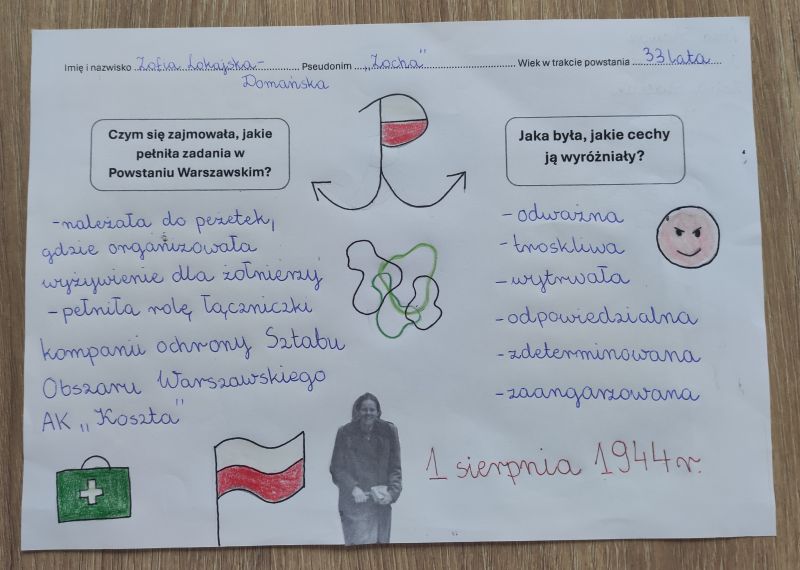 Imię i nazwisko Zofia Łokajska- Pseudonim „Zocha" Wiek w trakcie powstania 33 lata
Domańska
Czym się zajmowała, jakie
pełniła zadania w
Powstaniu Warszawskim?
-należała do peżetek,
gdzie organizowała
wyżywienie dla żołnierzy
-pełniła rolę łączniczki
kompanii ochrony Sztabu
Obszaru Warszawskiego
AK „Koszta"
Jaka była, jakie cechy
ją wyróżniały?
-odważna
-troskliwa
-wytrwała
-odpowiedzialna
-zdeterminowana
-zaangażowana
1 sierpnia 1944r.